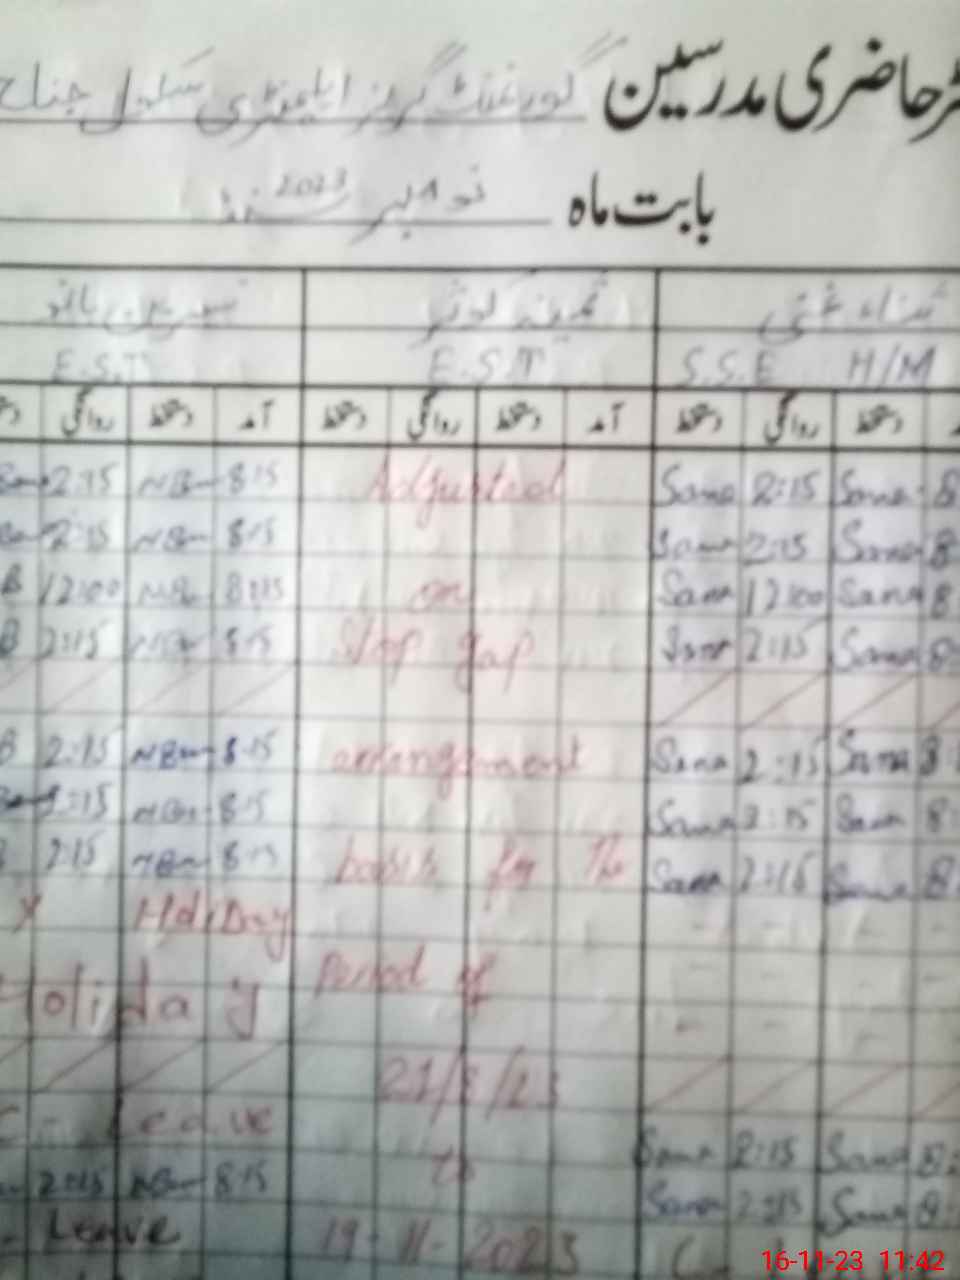 ٹر حاضری مدرسین گورنمنٹ گرلز ایلیمنٹری سکول جناح
بابت ماہ نومبر 2023
ثناء غنی ثمینہ کوثر نسرین بانو
S.S.E H/M E.S.T E.S.T
دستخط روانگی دستخط آمد دستخط روانگی دستخط آمد دستخط روانگی
2:15 NB 8:15 Adjusted Sana 2:15 Sana 8
2:15 NB 8:15 Sana 2:15 Sana 8
B 12:00 NB 8:15 on Sana 12:00 Sana 8
B 2:15 NB 8:15 Stop gap Sana 2:15 Sana 8
B 2:15 NB 8:15 arrangement Sana 2:15 Sana 8
2:15 NB 8:15 Sana 2:15 Sana 8
2:15 NB 8:15 basis for the Sana 2:15 Sana 8
x HoliDay
Period of
Holiday
21/8/23
C - Leave Sana 2:15 Sana 8
2:15 NB 8:15 to Sana 2:15 Sana 8
Leave 19-11-2023
16-11-23 11:42